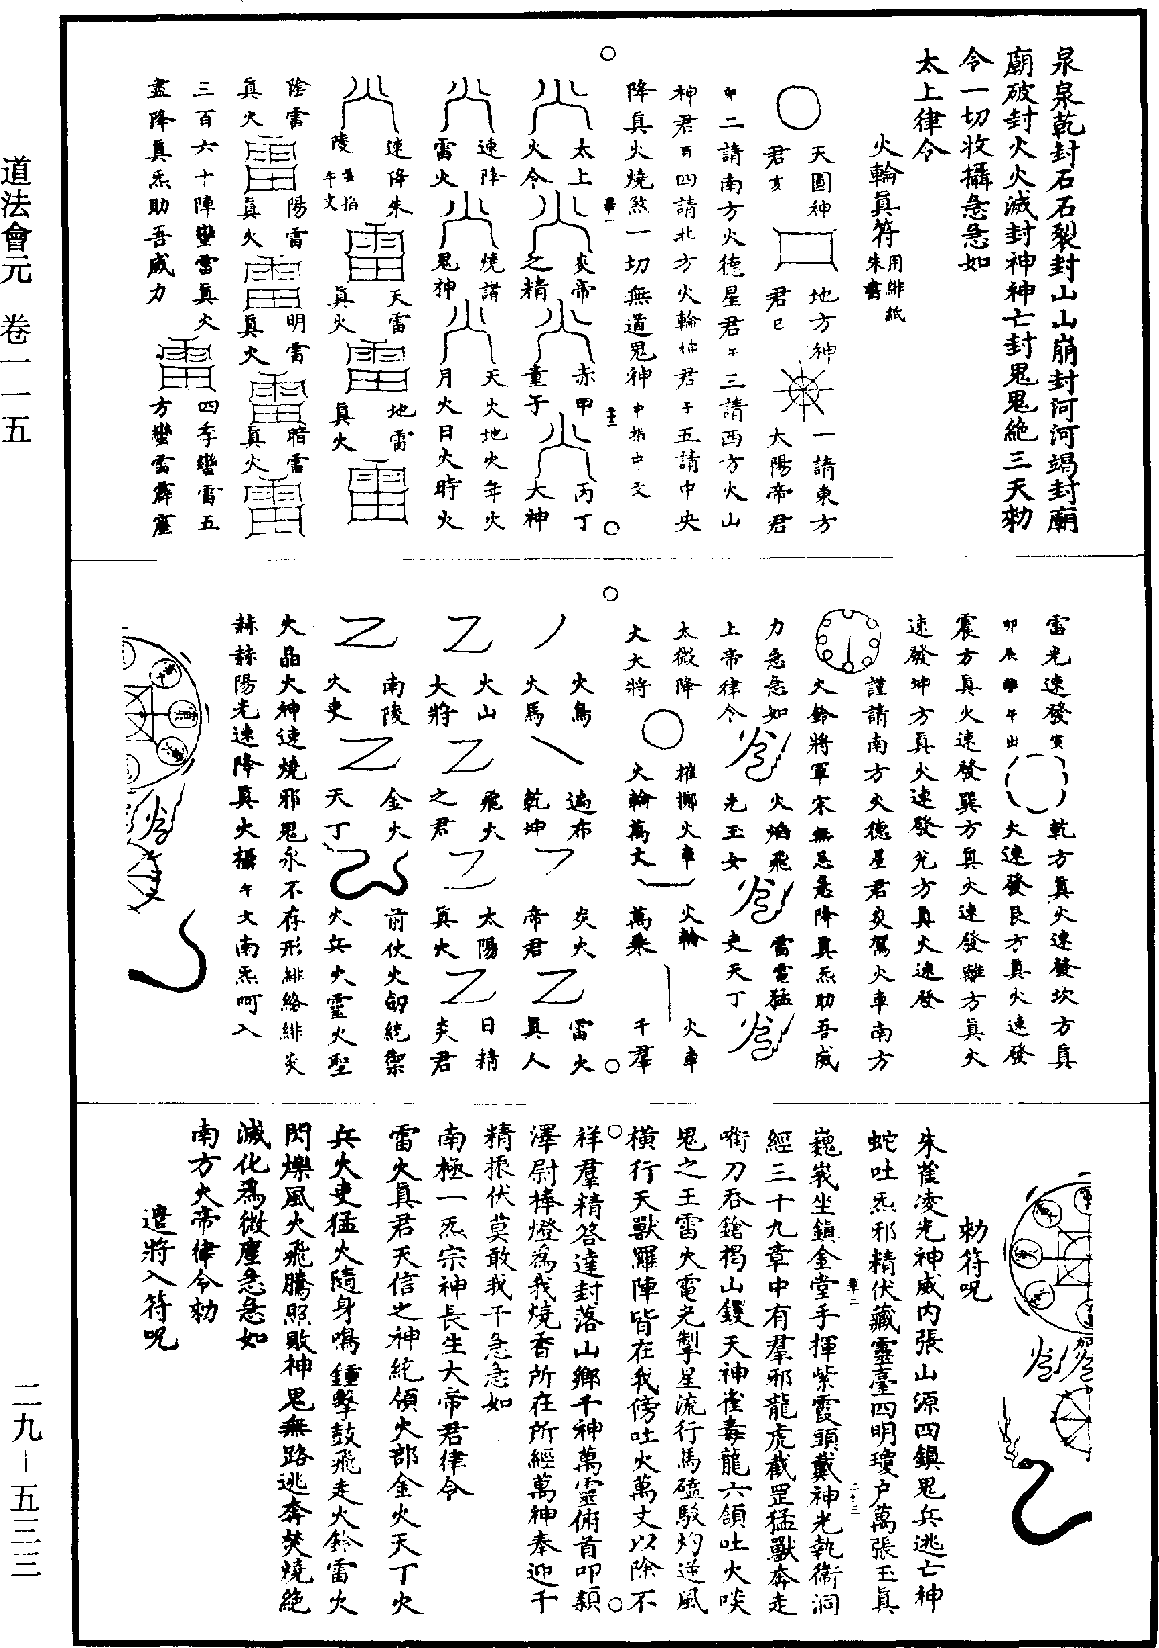 道法會元　卷一一五
二九－五三三
泉泉乾封石石裂封山山崩封河河竭封廟
廟破封火火滅封神神亡封鬼鬼絶三天勑
令一切收攝急急如
太上律令
火輪眞符用緋紙朱書
天圓神　地方神　一請東方
君亥　君巳　太陽帝君
二請南方火德星君　三請西方火山
神君　四請北方火輪神君子五請中央
降眞火燒煞一切無道鬼神
太上　炎帝　赤甲　丙丁
火令　之精　童子　大神
速降　燒諸　天火地火年火
雷火　鬼神　月火日火時火
速降朱　天雷　地雷
陵　眞火　眞火
陰雷　陽雷　明雷　暗雷
眞火　眞火　眞火　眞火
三百六十陣蠻雷眞火　四季蠻雷五
盡降眞炁助吾威力　方蠻雷霹靂
雷光速發寅　乾方眞火速發坎方眞
卯辰　午出　火速發艮方眞火速發
震方眞火速發巽方眞火速發離方眞火
速發坤方眞火速發兌方眞火速發
謹請南方火德星君炎駕火車南方
火鈴將軍宋無忌急降眞炁助吾威
力急急如　火焰飛　雷電猛
上帝律令　光玉女　吏天丁
太微降　摧擲火車　火輪　火車
大大將　火輪萬丈　萬乘　千群
火鳥　遍布　炎火　雷火
火馬　乾坤　帝君　眞人
火山　飛火　太陽　日精
大將　之君　眞火　炎君
南陵　金火　前伏火劒統禦
火吏　天丁　火兵火靈火聖
火晶火神速燒邪鬼永不存形緋絡緋炎
赫赫陽光速降眞火攝午文南炁呵入
勑符呪
朱雀凌光神威内張山源四鎭鬼兵逃亡神
蛇吐炁邪精伏藏靈臺四明瓊户萬張玉眞
巍峩坐鎭金堂手揮紫霞頭戴神光執衞洞
經三十九章中有羣邪龍虎截罡猛獸奔走
啣刀吞鎗揭山鑊天神雀毒龍六頷吐火啖
鬼之王雷火電光掣星流行馬礚駁灼逆風
橫行天獸羅陣皆在我傍吐火萬丈以除不
祥羣精答達封落山鄉千神萬靈俯首叩顙
澤尉棒燈爲我燒香所在所經萬神奉迎千
精振伏莫敢我干急急如
南極一炁宗神長生大帝君律令
雷火眞君天信之神統領火部金火天丁火
兵火吏猛火隨身鳴鍾擊鼓飛走火鈴雷火
閃爍風火飛騰照敗神鬼無路逃奔焚燒絶
滅化爲微塵急急如
南方火帝律令勑
遣將入符呪